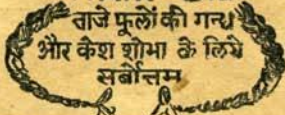 ताजे फूलों की गन्ध
और केश शोभा के लिये
सर्बोत्तम